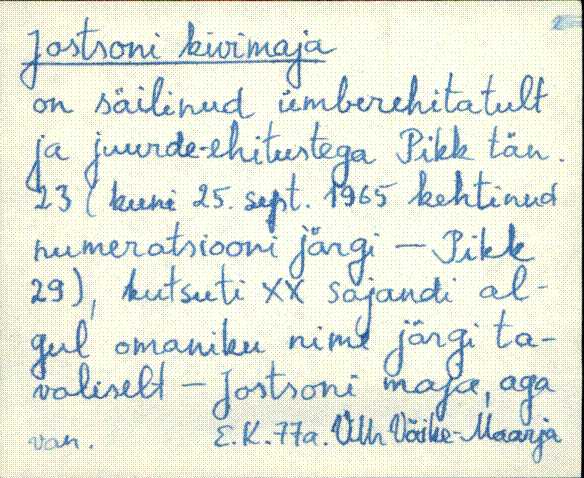 Jostsoni kivimaja
on säilinud ümberehitatult
ja juurde-ehitustega Pikk tän.
23 (kuni 25. sept. 1965 kehtinud
numeratsiooni järgi — Pikk
29), kutsuti XX sajandi al-
gul omaniku nime järgi ta-
valiselt — Jostsoni maja, aga
van. E.K. 77a. Väike-Maarja